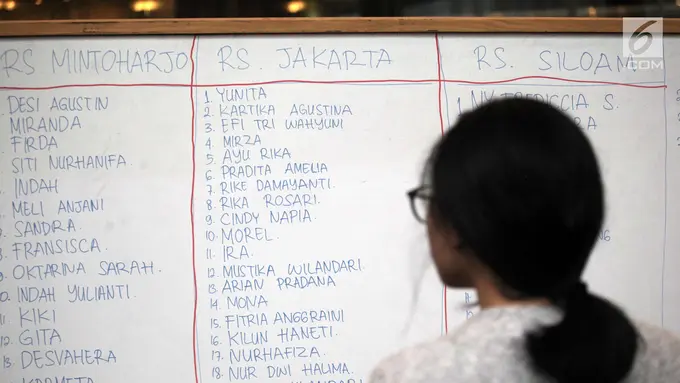 RS MINTOHARJO
DESI AGUSTIN
MIRANDA
FIRDA
SITI NURHANIFA
INDAH
MELI ANJANI
SANDRA
8 FRANSISCA
9 OKTARINA SARAH
INDAH YULIANTI
11 KIKI
12 GITA
13 DESVAHERA
RS. JAKARTA
1 YUNITA
2 KARTIKA AGUSTINA
3 EFI TRI WAHYUNI
4 MIRZA
5 AYU RIKA
6 PRADITA AMELIA
7 RIKE DAMAYANTI.
8 RIKA ROSARI.
9 CINDY NAPIA.
10. MOREL.
11. IRA.
12 MUSTIKA WILANDARI.
13 ARIAN PRADANA
14 MONA
15. FITRIA ANGGRAINI
16 KILUN HANETI.
17. NURHAFIZA.
18. NUR DINI HALIMA.
RS. SILOAM
6
.COM